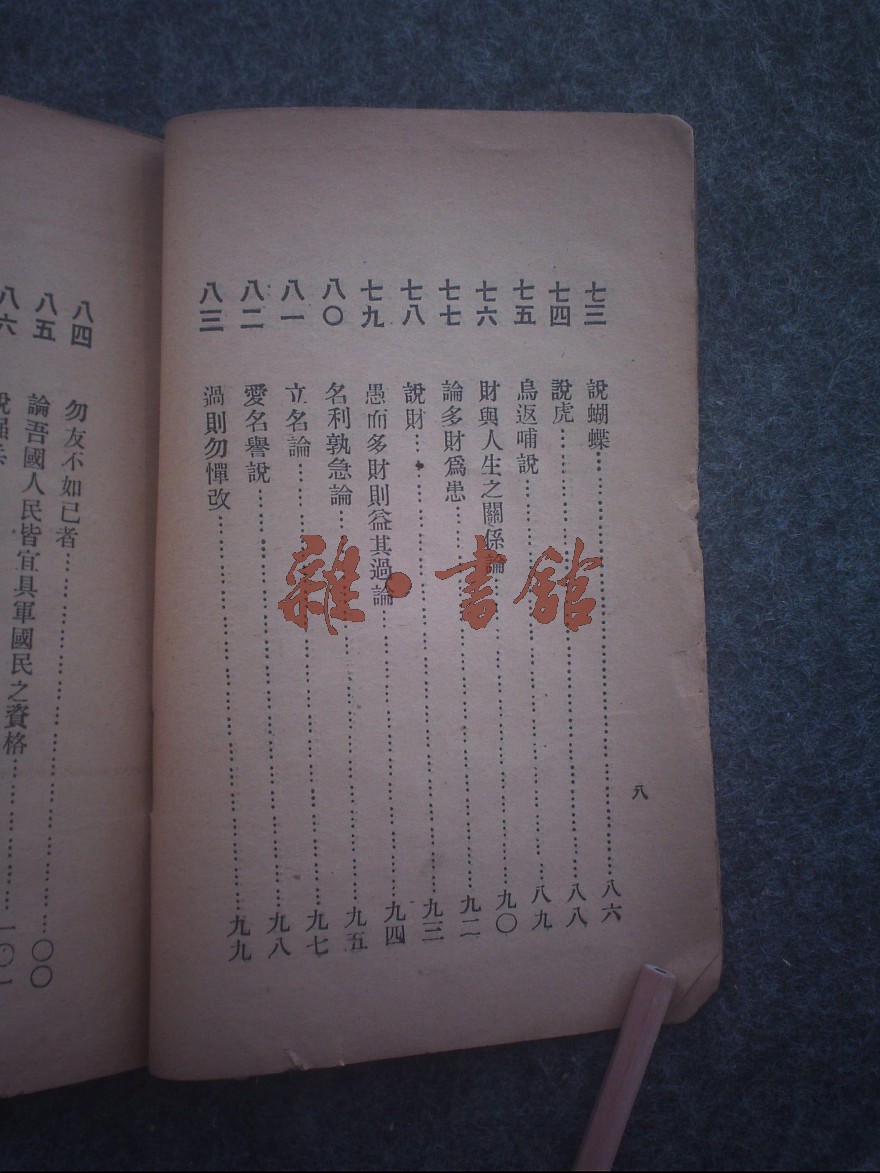 八
七三 說蝴蝶……八六
七四 說虎……八八
七五 烏返哺說……八九
七六 財與人生之關係論……九〇
七七 論多財爲患……九二
七八 說財……九三
七九 愚而多財則益其過論……九四
八〇 名利孰急論……九五
八一 立名論……九七
八二 愛名譽說……九八
八三 過則勿憚改……九九
八四 勿友不如已者……〇〇
八五 論吾國人民皆宜具軍國民之資格……一〇一
八六
雜·書館